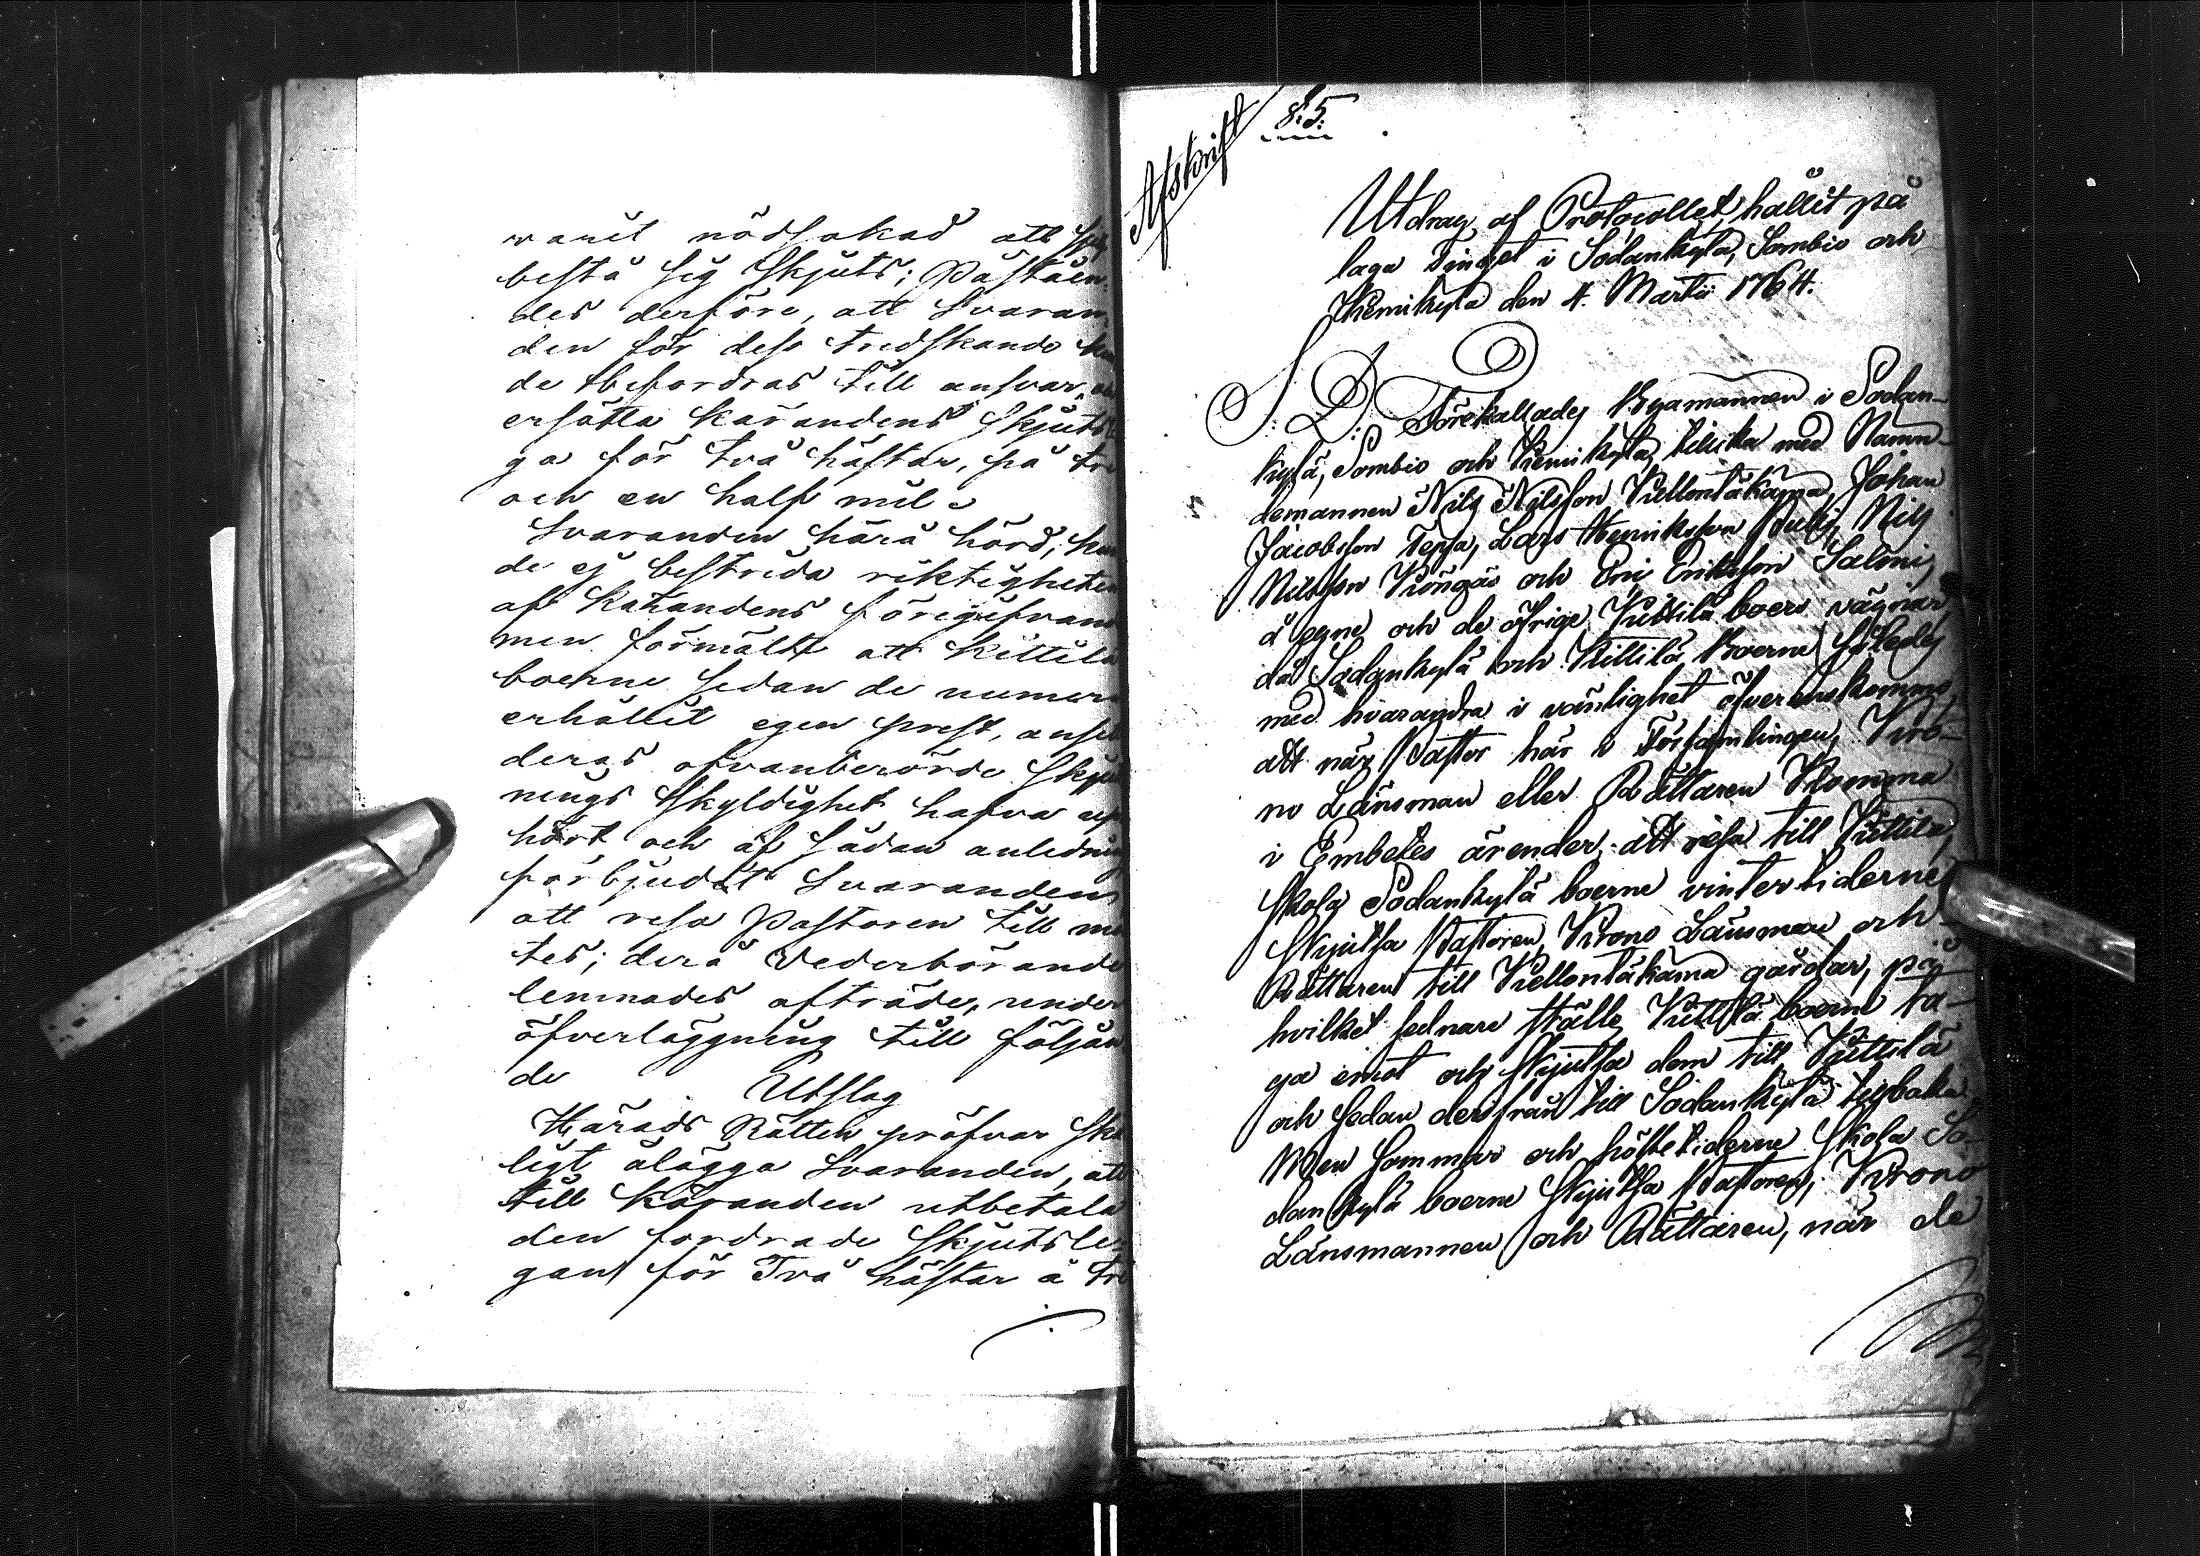 warit nödsakad att
bestå sig Skjuts; Påståen-
des derföre, att Svaran
den för dess tredskande
de befordras till ansvar,
ersätta Kärandens Skjuts
ga för två hästar, på
och en half mil.
Svaranden härå hörd,
de ej bestrida riktigheten
af Kärandens föregifvan
men förmälte att Kittilä
boerne sedan de numera
erhållit egen prest, anse
deras ofvanberörde Skjut
nings Skyldighet hafva
hört och af sådan anledning
förbjudit Svaranden
att resa Pastoren till
tes; derå Vederbörande
lemnades afträde, under
öfverläggning till följan
de
Utslag
Härads Rätten pröfvar
ligt ålägga Svaranden, att
till Käranden utbetala
den fordrade Skjutsle
gan för Två hästar å
Afskrift
§:5.
Utdrag af Protocollet, hållit på
laga Tinget i Sodankylä, Sombio och
Kemikylä den 4. Martii 1764.
S: D: Förekallades Byamännen i Sodan-
kylä, Sombio och Kemikylä, tillika med Nämn-
demannen Nils Nilsson Kiellontäkama, Johan
Jacobsson Tepsa, Lars Henriksson Nils
Nilsson Köngäs och Eric Ericksson Saloni,
å egne och de öfrige Kittilä boers vägnar,
då Sodankylä och Kittilä Boerne
med hvarandra i vänlighet öfverenskommo,
att när Pastor här i Församlingen, Kro-
no Länsman eller Rättaren Komma
i Embetes ärender, att resa till Kittilä,
Skola Sodankylä boerne vintertiderne
Skjutsa Pastoren, Krono Länsman och
Rättaren till Kiellontäkama gårdar, på
hvilket sednare ställe Kittilä boerne ta-
ga emot och Skjutsa dem till Kittilä
och sedan derifrån till Sodankylä tillbaka.
Men sommar och hösttetiderne Skola So-
dankylä boerne Skjutsa Pastoren, Krono
Länsmannen och Rättaren, när de